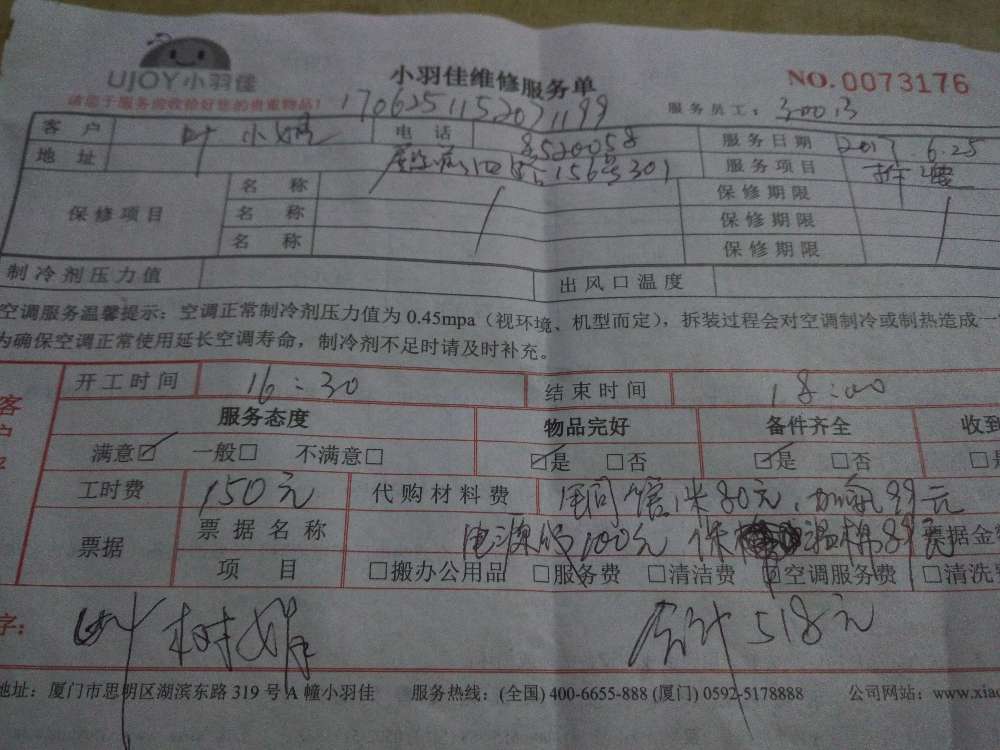 UJOY小羽佳
小羽佳维修服务单
NO.0073176
请您于服务前收拾好您的贵重物品！
1706251152071199
服务员工：
客户 叶小婷 电话 8520058 服务日期 2017.6.25
地址 156号301 服务项目
保修项目 名称 保修期限
名称 保修期限
名称 保修期限
制冷剂压力值 出风口温度
空调服务温馨提示：空调正常制冷剂压力值为 0.45mpa（视环境、机型而定），拆装过程会对空调制冷或制热造成一
为确保空调正常使用延长空调寿命，制冷剂不足时请及时补充。
开工时间 16:30 结束时间 18:00
服务态度 物品完好 备件齐全 收到
满意☑ 一般□ 不满意□ ☑是 □否 ☑是 □否 □是
工时费 150元 代购材料费 铜管1米80元，加氟99元
票据 票据名称 电源线100元 保温棉89元 票据金
项目 □搬办公用品 □服务费 □清洁费 ☑空调服务费 □清洗
字： 叶树婷 合计518元
地址：厦门市思明区湖滨东路 319 号 A 幢小羽佳 服务热线：(全国) 400-6655-888 (厦门) 0592-5178888 公司网站：www.xiao